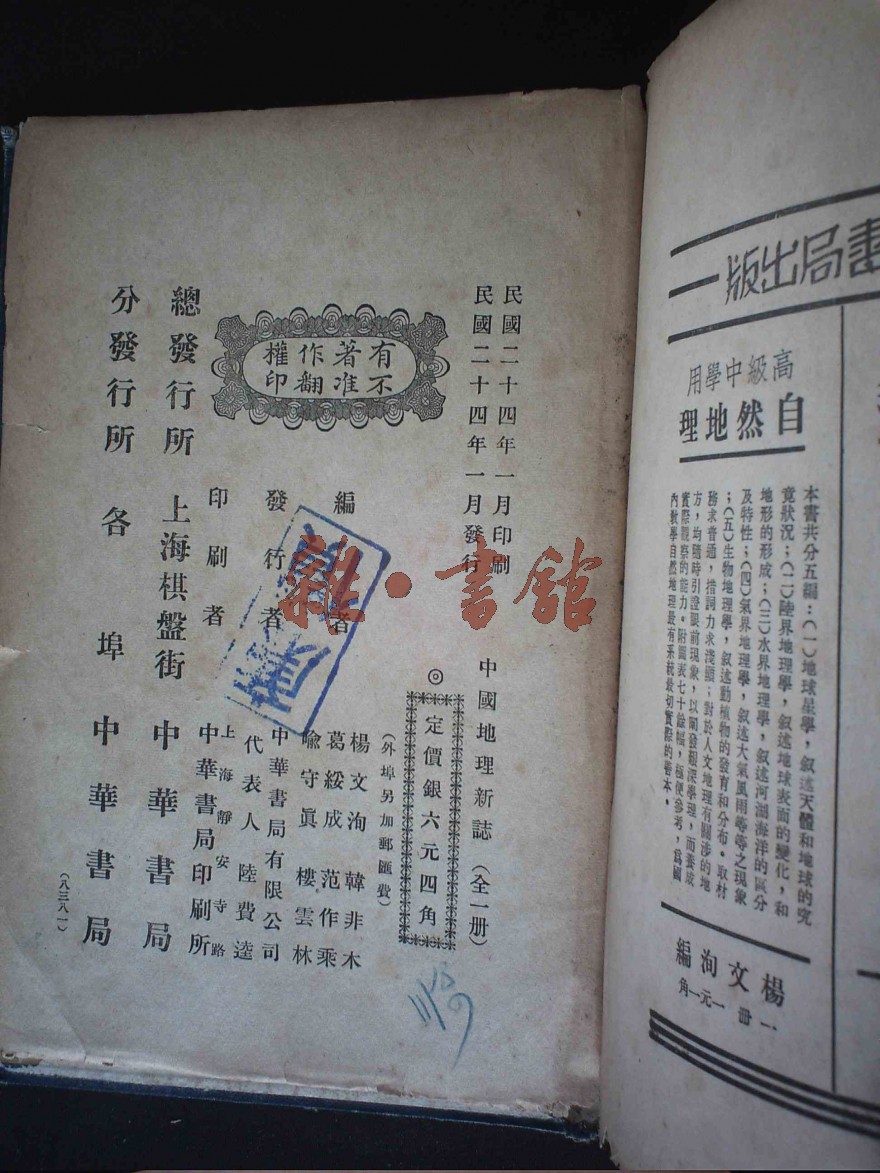 民國二十四年一月印刷
民國二十四年一月發行
有著作權
不准翻印
中國地理新誌（全一册）
◎定價銀六元四角
（外埠另加郵匯費）
編者
楊文洵 韓非木
葛綏成 范作乘
喻守眞 樓雲林
發行者
中華書局有限公司
代表人 陸費逵
印刷者
上海靜安寺路
中華書局印刷所
總發行所 上海棋盤街 中華書局
分發行所 各埠 中華書局
（八三八一）
雜·書館
書局出版一
高級中學用
自然地理
本書共分五編：（一）地球星學，叙述天體和地球的究
竟狀況；（二）陸界地理學，叙述地球表面的變化，和
地形的形成；（三）水界地理學，叙述河湖海洋的區分
及特性；（四）氣界地理學，叙述大氣風雨等等之現象
；（五）生物地理學，叙述動植物的發育和分布。取材
務求普通，措詞力求淺顯；對於人文地理有關涉的地
方，均隨時引證眼前現象，以闡發艱深學理，而養成
實際觀察的能力。附圖表七十餘幅，極便參考，爲國
內敎學自然地理最有系統最切實際的善本。
楊文洵編
一册 一元一角